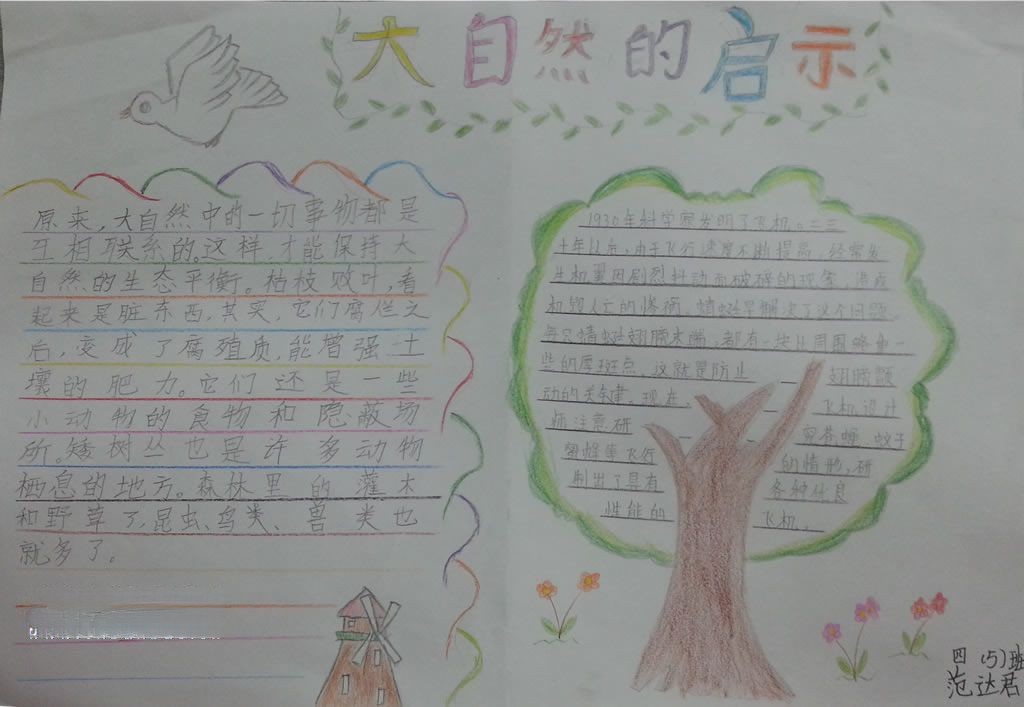 大自然的启示
原来,大自然中的一切事物都是
互相联系的。这样才能保持大
自然的生态平衡。枯枝败叶,看
起来是脏东西,其实,它们腐烂之
后,变成了腐殖质,能增强土
壤的肥力。它们还是一些
小动物的食物和隐蔽场
所。矮树丛也是许多动物
栖息的地方。森林里的灌木
和野草了,昆虫、鸟类、兽类也
就多了。
1930年科学家发明了飞机。二三
十年以后,由于飞行速度不断提高,经常发
生机翼因剧烈抖动而破碎的现象,造成
机毁人亡的惨祸。蜻蜓早解决了这个问题。
每只蜻蜓翅膀末端,都有一块比周围略重一
些的厚斑点,这就是防止 翅膀颤
动的关键。现在, 飞机设计
师注意研 究苍蝇、蚊子
蜜蜂等飞行 的情形,研
制出了具有 各种优良
性能的 飞机。
四(5)班
范达君